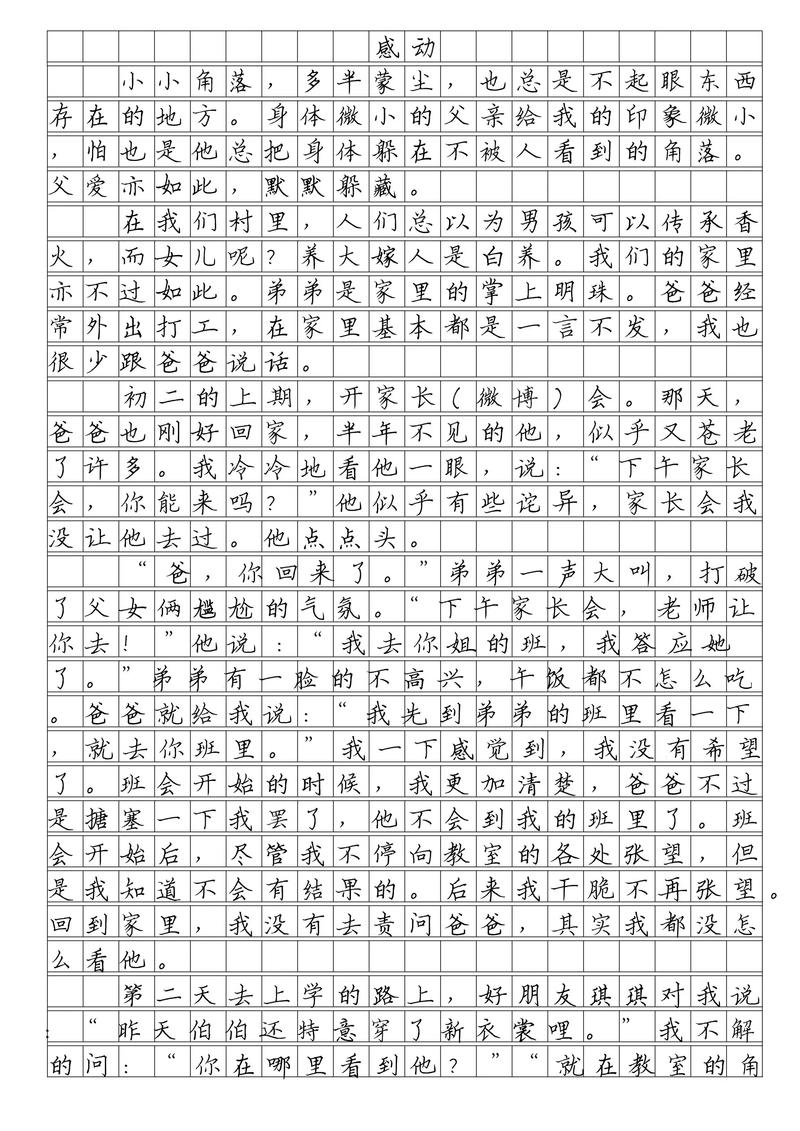 感动
小小角落，多半蒙尘，也总是不起眼东西
存在的地方。身体微小的父亲给我的印象微小
，怕也是他总把身体躲在不被人看到的角落。
父爱亦如此，默默躲藏。
在我们村里，人们总以为男孩可以传承香
火，而女儿呢？养大嫁人是白养。我们的家里
亦不过如此。弟弟是家里的掌上明珠。爸爸经
常外出打工，在家里基本都是一言不发，我也
很少跟爸爸说话。
初二的上期，开家长(微博)会。那天，
爸爸也刚好回家，半年不见的他，似乎又苍老
了许多。我冷冷地看他一眼，说：“下午家长
会，你能来吗？”他似乎有些诧异，家长会我
没让他去过。他点点头。
“爸，你回来了。”弟弟一声大叫，打破
了父女俩尴尬的气氛。“下午家长会，老师让
你去！”他说：“我去你姐的班，我答应她
了。”弟弟有一脸的不高兴，午饭都不怎么吃
。爸爸就给我说：“我先到弟弟的班里看一下
，就去你班里。”我一下感觉到，我没有希望
了。班会开始的时候，我更加清楚，爸爸不过
是搪塞一下我罢了，他不会到我的班里了。班
会开始后，尽管我不停向教室的各处张望，但
是我知道不会有结果的。后来我干脆不再张望。
回到家里，我没有去责问爸爸，其实我都没怎
么看他。
第二天去上学的路上，好朋友琪琪对我说
：“昨天伯伯还特意穿了新衣裳哩。”我不解
的问：“你在哪里看到他？”“就在教室的角